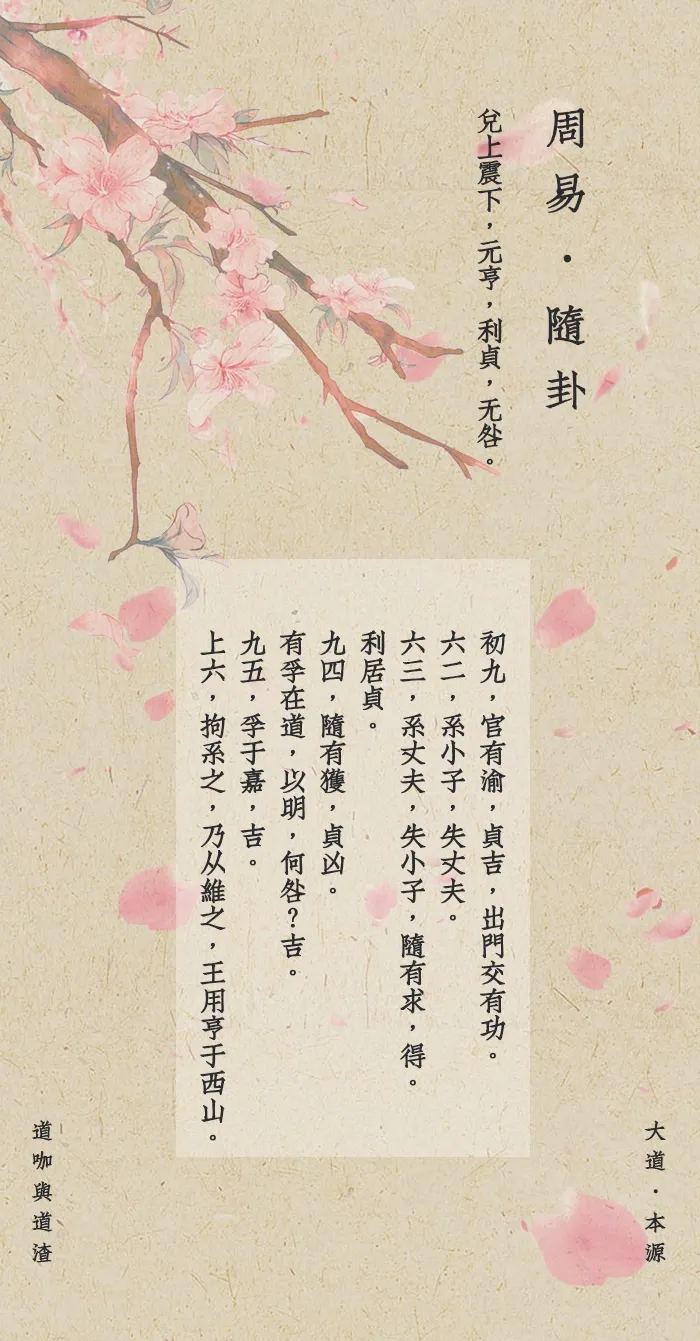 周易·隨卦
兌上震下，元亨，利貞，无咎。
初九，官有渝，貞吉，出門交有功。
六二，系小子，失丈夫。
六三，系丈夫，失小子，隨有求，得。
利居貞。
九四，隨有獲，貞凶。
有孚在道，以明，何咎？吉。
九五，孚于嘉，吉。
上六，拘系之，乃从維之，王用亨于西山。
大道·本源
道咖與道渣